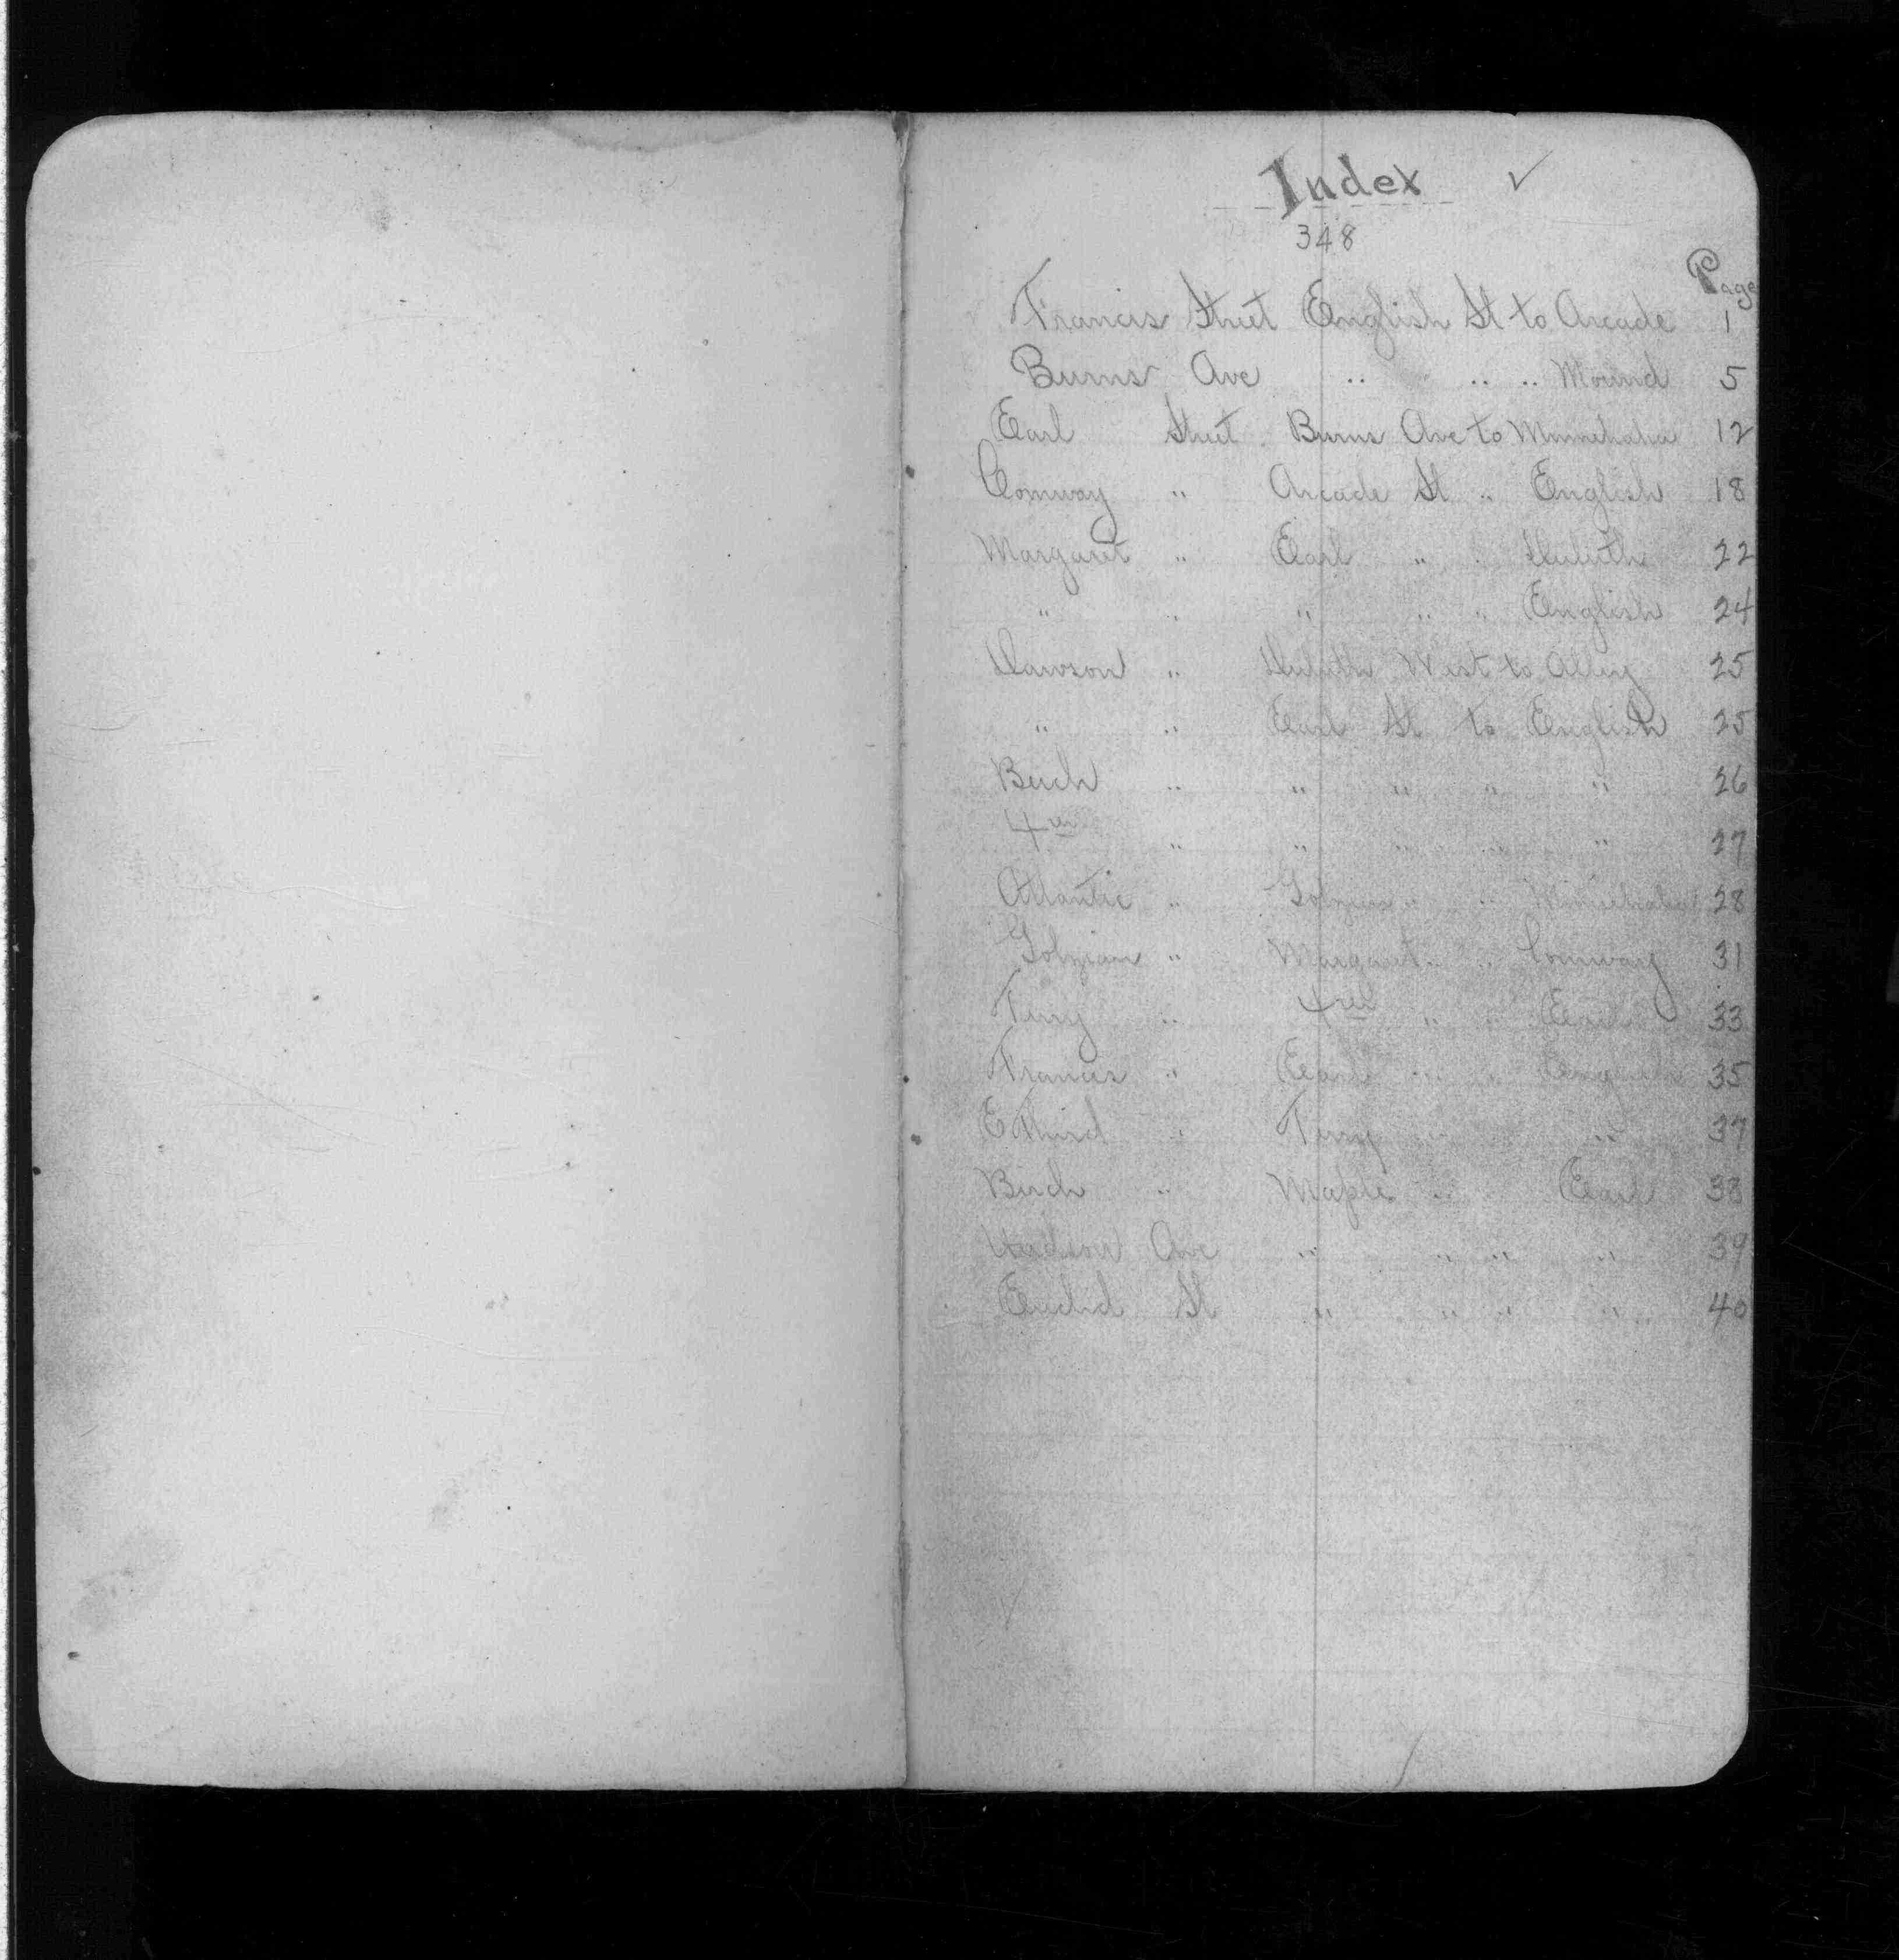 Index ✓
348
Page
Francis Street English St to Arcade 1
Burns Ave " " " Mound 5
Earl Street Burns Ave to Minnehaha 12
Conway " Arcade St " English 18
Margaret " Earl " " Duluth 22
" " " " " English 24
Dawson " Duluth West to Alley 25
" " Earl St to English 25
Birch " " " " " 26
4th " " " " " 27
Atlantic " Gotzian " " Minnehaha 28
Gotzian " Margaret " " Conway 31
Terry " 4th " " Earl 33
Francis " Earl " " English 35
E Third " Terry " " 37
Birch " Maple " Earl 38
Hudson Ave " " " " 39
Euclid St " " " " 40